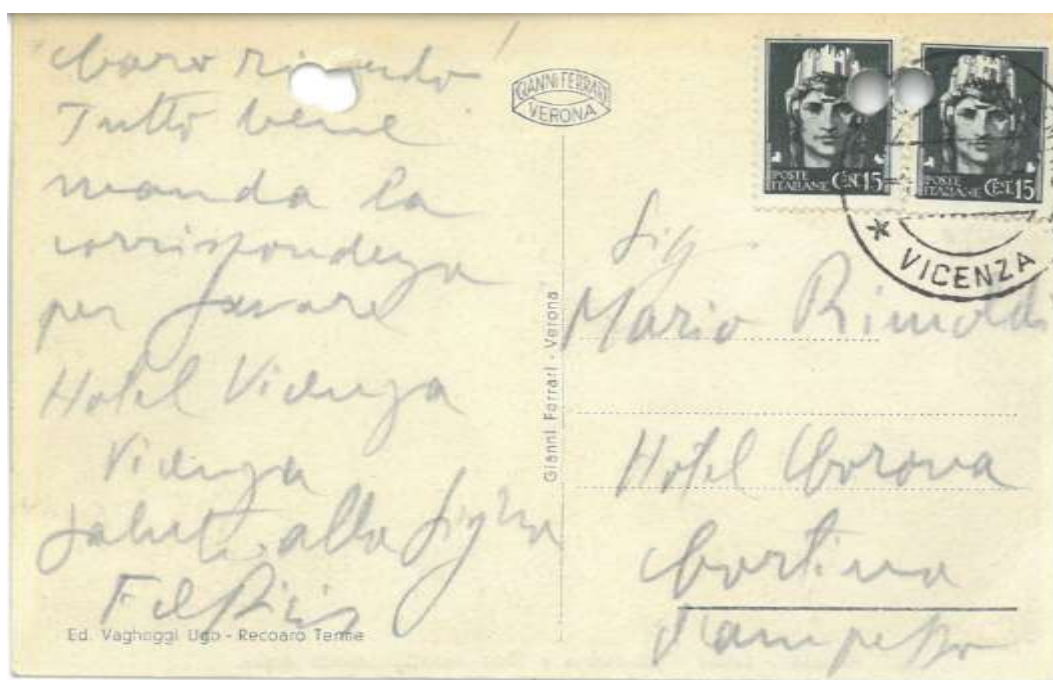 Caro
Tutto bene
manda la
corrispondenza
per favore
Hotel Vicenza
Vicenza
saluti alla Sig.ra
Ed. Vagheggi Ugo - Recoaro Terme
GIANNI FERRARI
VERONA
Gianni Ferrari - Verona
POSTE ITALIANE CENT. 15
POSTE ITALIANE CENT. 15
* VICENZA
Sig
Mario Rimoldi
Hotel Corona
Cortina
d'Ampezzo